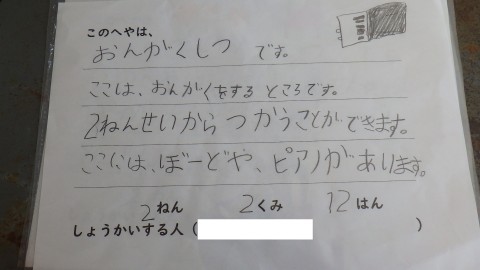 このへやは、
おんがくしつ です。
ここは、おんがくをする ところです。
2ねんせいから つかうことが、できます。
ここには、ぼーどや、ピアノが あります。
2ねん 2くみ 12はん
しょうかいする人 ( )